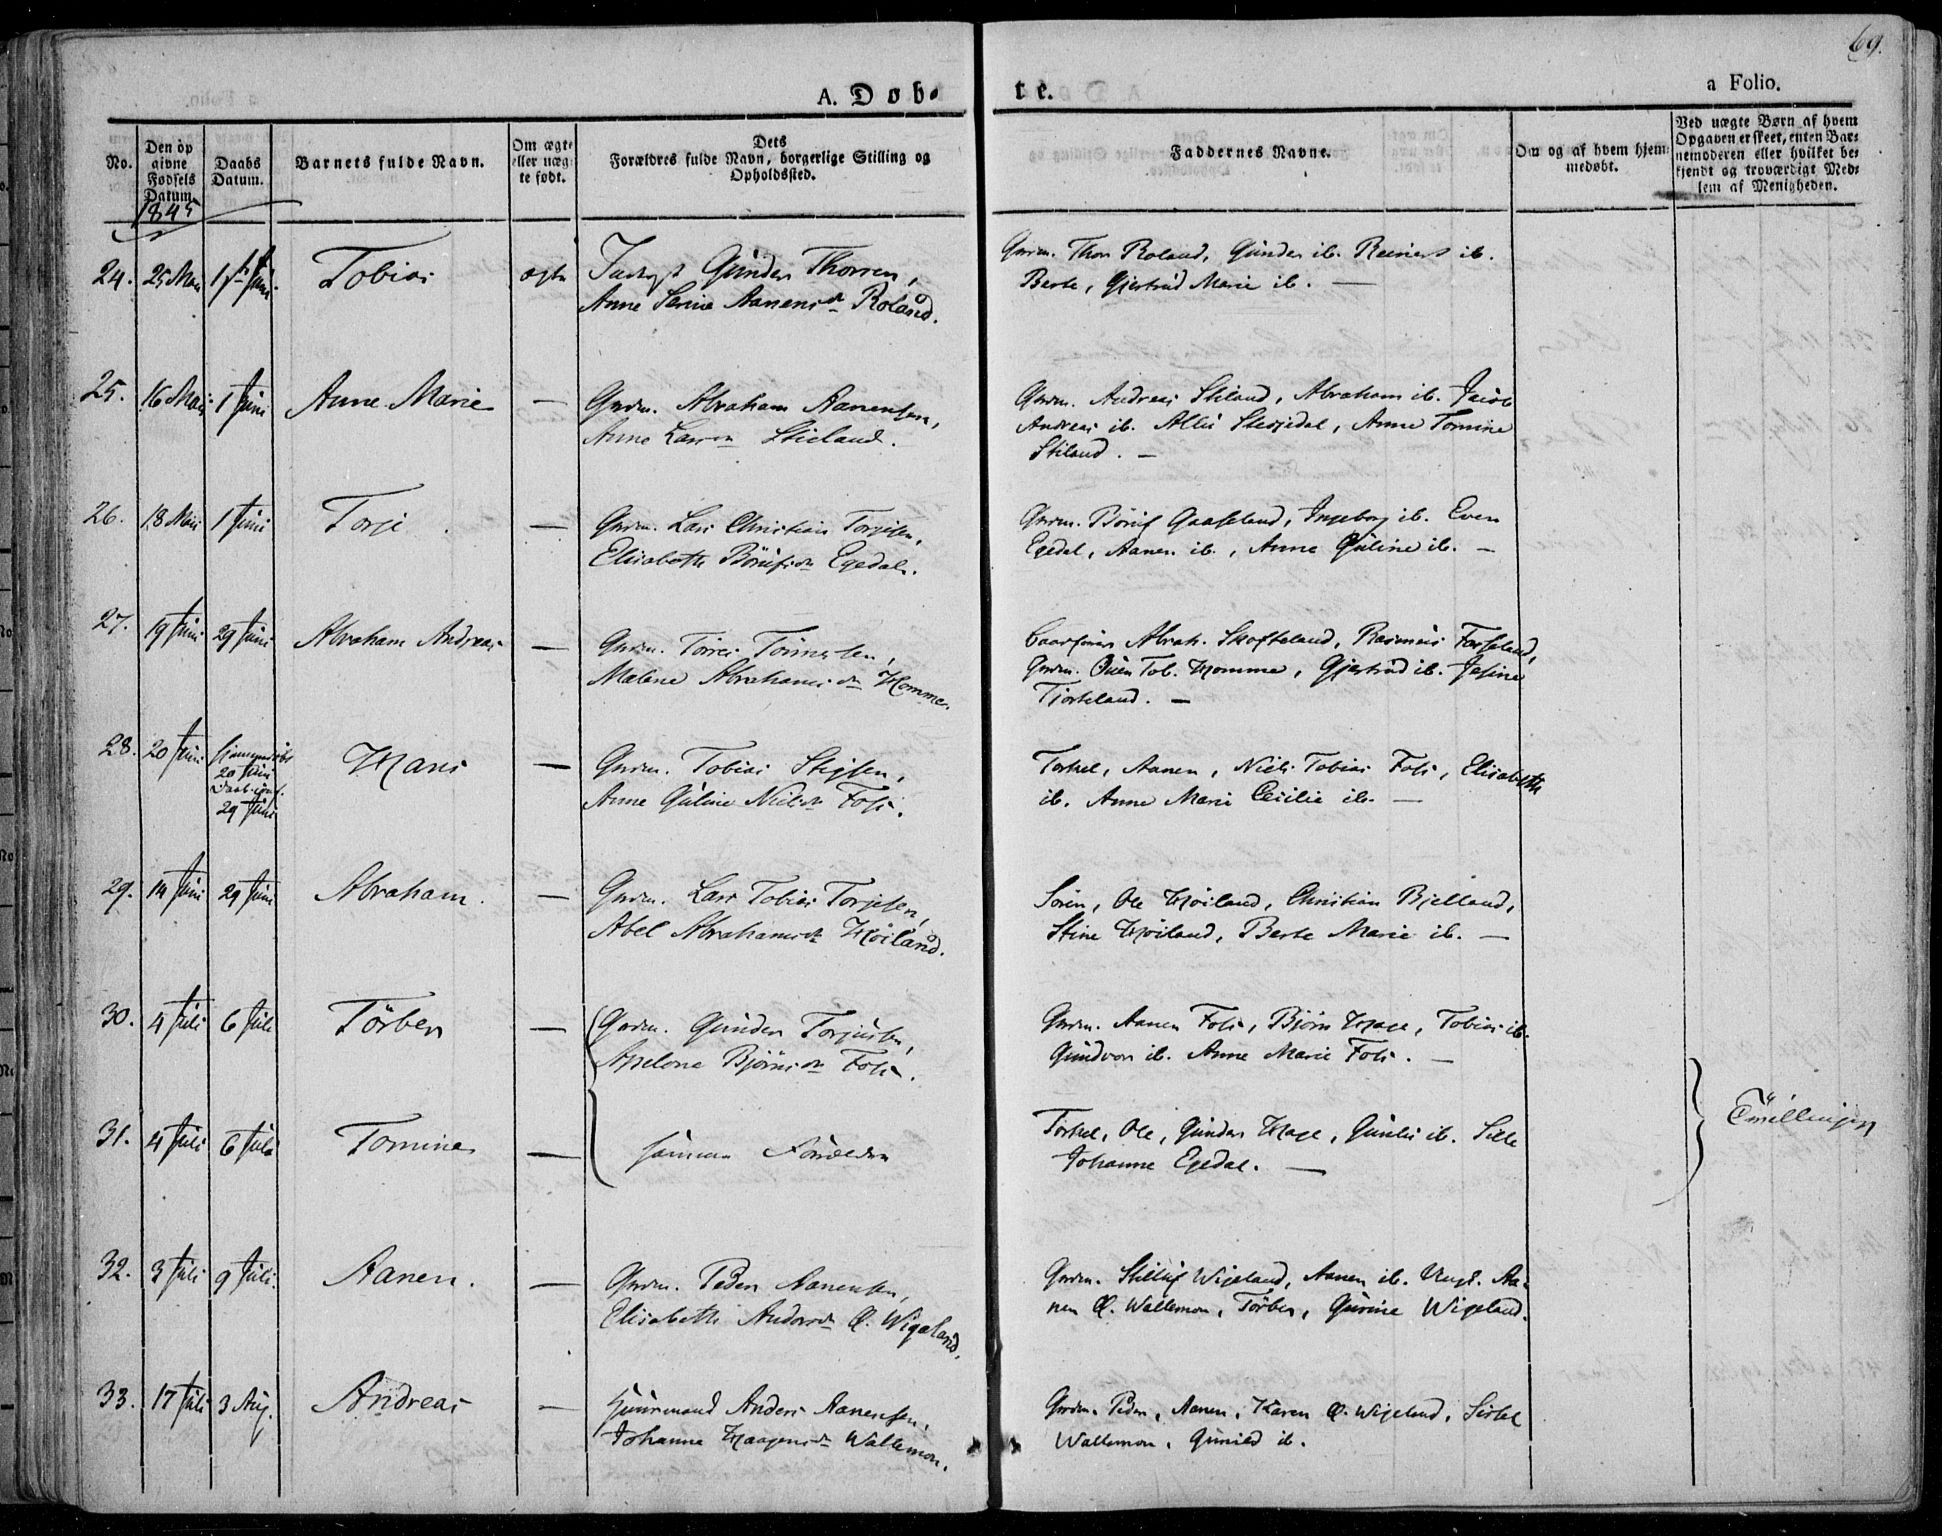 69.
A. Døb-
te.
a Folio.
No.
Den op
givne
Fødsels
Datum.
Daabs
Datum.
Barnets fulde Navn.
Om ægte
eller uæg-
te født.
Dets
Forældres fulde Navn, borgerlige Stilling og
Opholdssted.
Faddernes Navne.
Om og af hvem hjem-
medøbt.
Ved uægte Børn af hvem
Opgaven er skeet, enten Bar-
nemoderen eller hvilket be-
kjendt og troværdigt Med-
lem af Menigheden.
1845
24. 25 Mai 1ste Juni Tobias ægte Gunder Thorsen,
Anne Serine Aanensd. Roland.
Gmdm. Thor Roland, Gunder ib. Reinert ib.
Berte, Gjertrud Marie ib. —
25. 16 Mai 1 Juni Anne Marie — Gmdm. Abraham Aanensen,
Anne Larsd. Stieland.
Gmdm. Andreas Stiland, Abraham ib. Jacob
Andreas ib. Anne Tomine
Stiland. —
26. 18 Mai 1 Juni Torje — Gmdm. Lars Christian Torjesen,
Elisabeth Børufsd. Egedal.
Gmdm. Børuf Gaaseland, Ingeborg ib. Even
Egedal, Aanen ib., Anne Guline ib. —
27. 19 Juni 29 Juni Abraham Andreas — Gmdm. Tørres Tønnesen,
Malene Abrahamsd. Homme.
Abrah. Skofteland, Rasmus Fasseland,
Gmdm. Ouen Tob. Homme, Gjertrud ib. Jesine
Tjorteland. —
28. 20 Juni Hjemmedøbt
20 Juni
29 Juni
Hans — Gmdm. Tobias Stigsen,
Anne Guline Nielsd. Foss.
Torkel, Aanen, Niels Tobias Foss, Elisabeth
ib. Anne Marie Cecilie ib. —
29. 14 Juni 29 Juni Abraham. — Gmdm. Lars Tobias Torjesen,
Abel Abrahamsd. Høiland.
Søren, Ole Høiland, Christian Bjelland,
Stine Høiland, Berte Marie ib. —
30. 4 Juli 6 Juli Tørber — Gmdm. Gunder Torjusen,
Apelone Bjørnsd. Foss.
Gmdm. Aanen Foss, Bjørn Hage, Tobias ib.
Gundvor ib. Anne Marie Foss. —
31. 4 Juli 6 Juli Tomine — samme Forældre
Torkel, Ole, Gunder Hage, Gunild ib. Sille
Johanne Egedal. —
Tvillinger
32. 3 Juli 9 Juli. Aanen. — Gmdm. Peder Aanensen,
Elisabeth Andersd. Ø. Wigeland.
Gmdm. Stilluf Wigeland, Aanen ib. Ungk. Aa-
nen Ø. Wallemon, Tørber, Gurine Wigeland.
33. 17 Juli 3 Aug. Andreas — Huusmand Anders Aanensen,
Johanne Haagensd. Wallemon.
Gmdm. Peder, Aanen, Karen Ø. Wigeland, Siskel
Wallemon, Gunild ib.